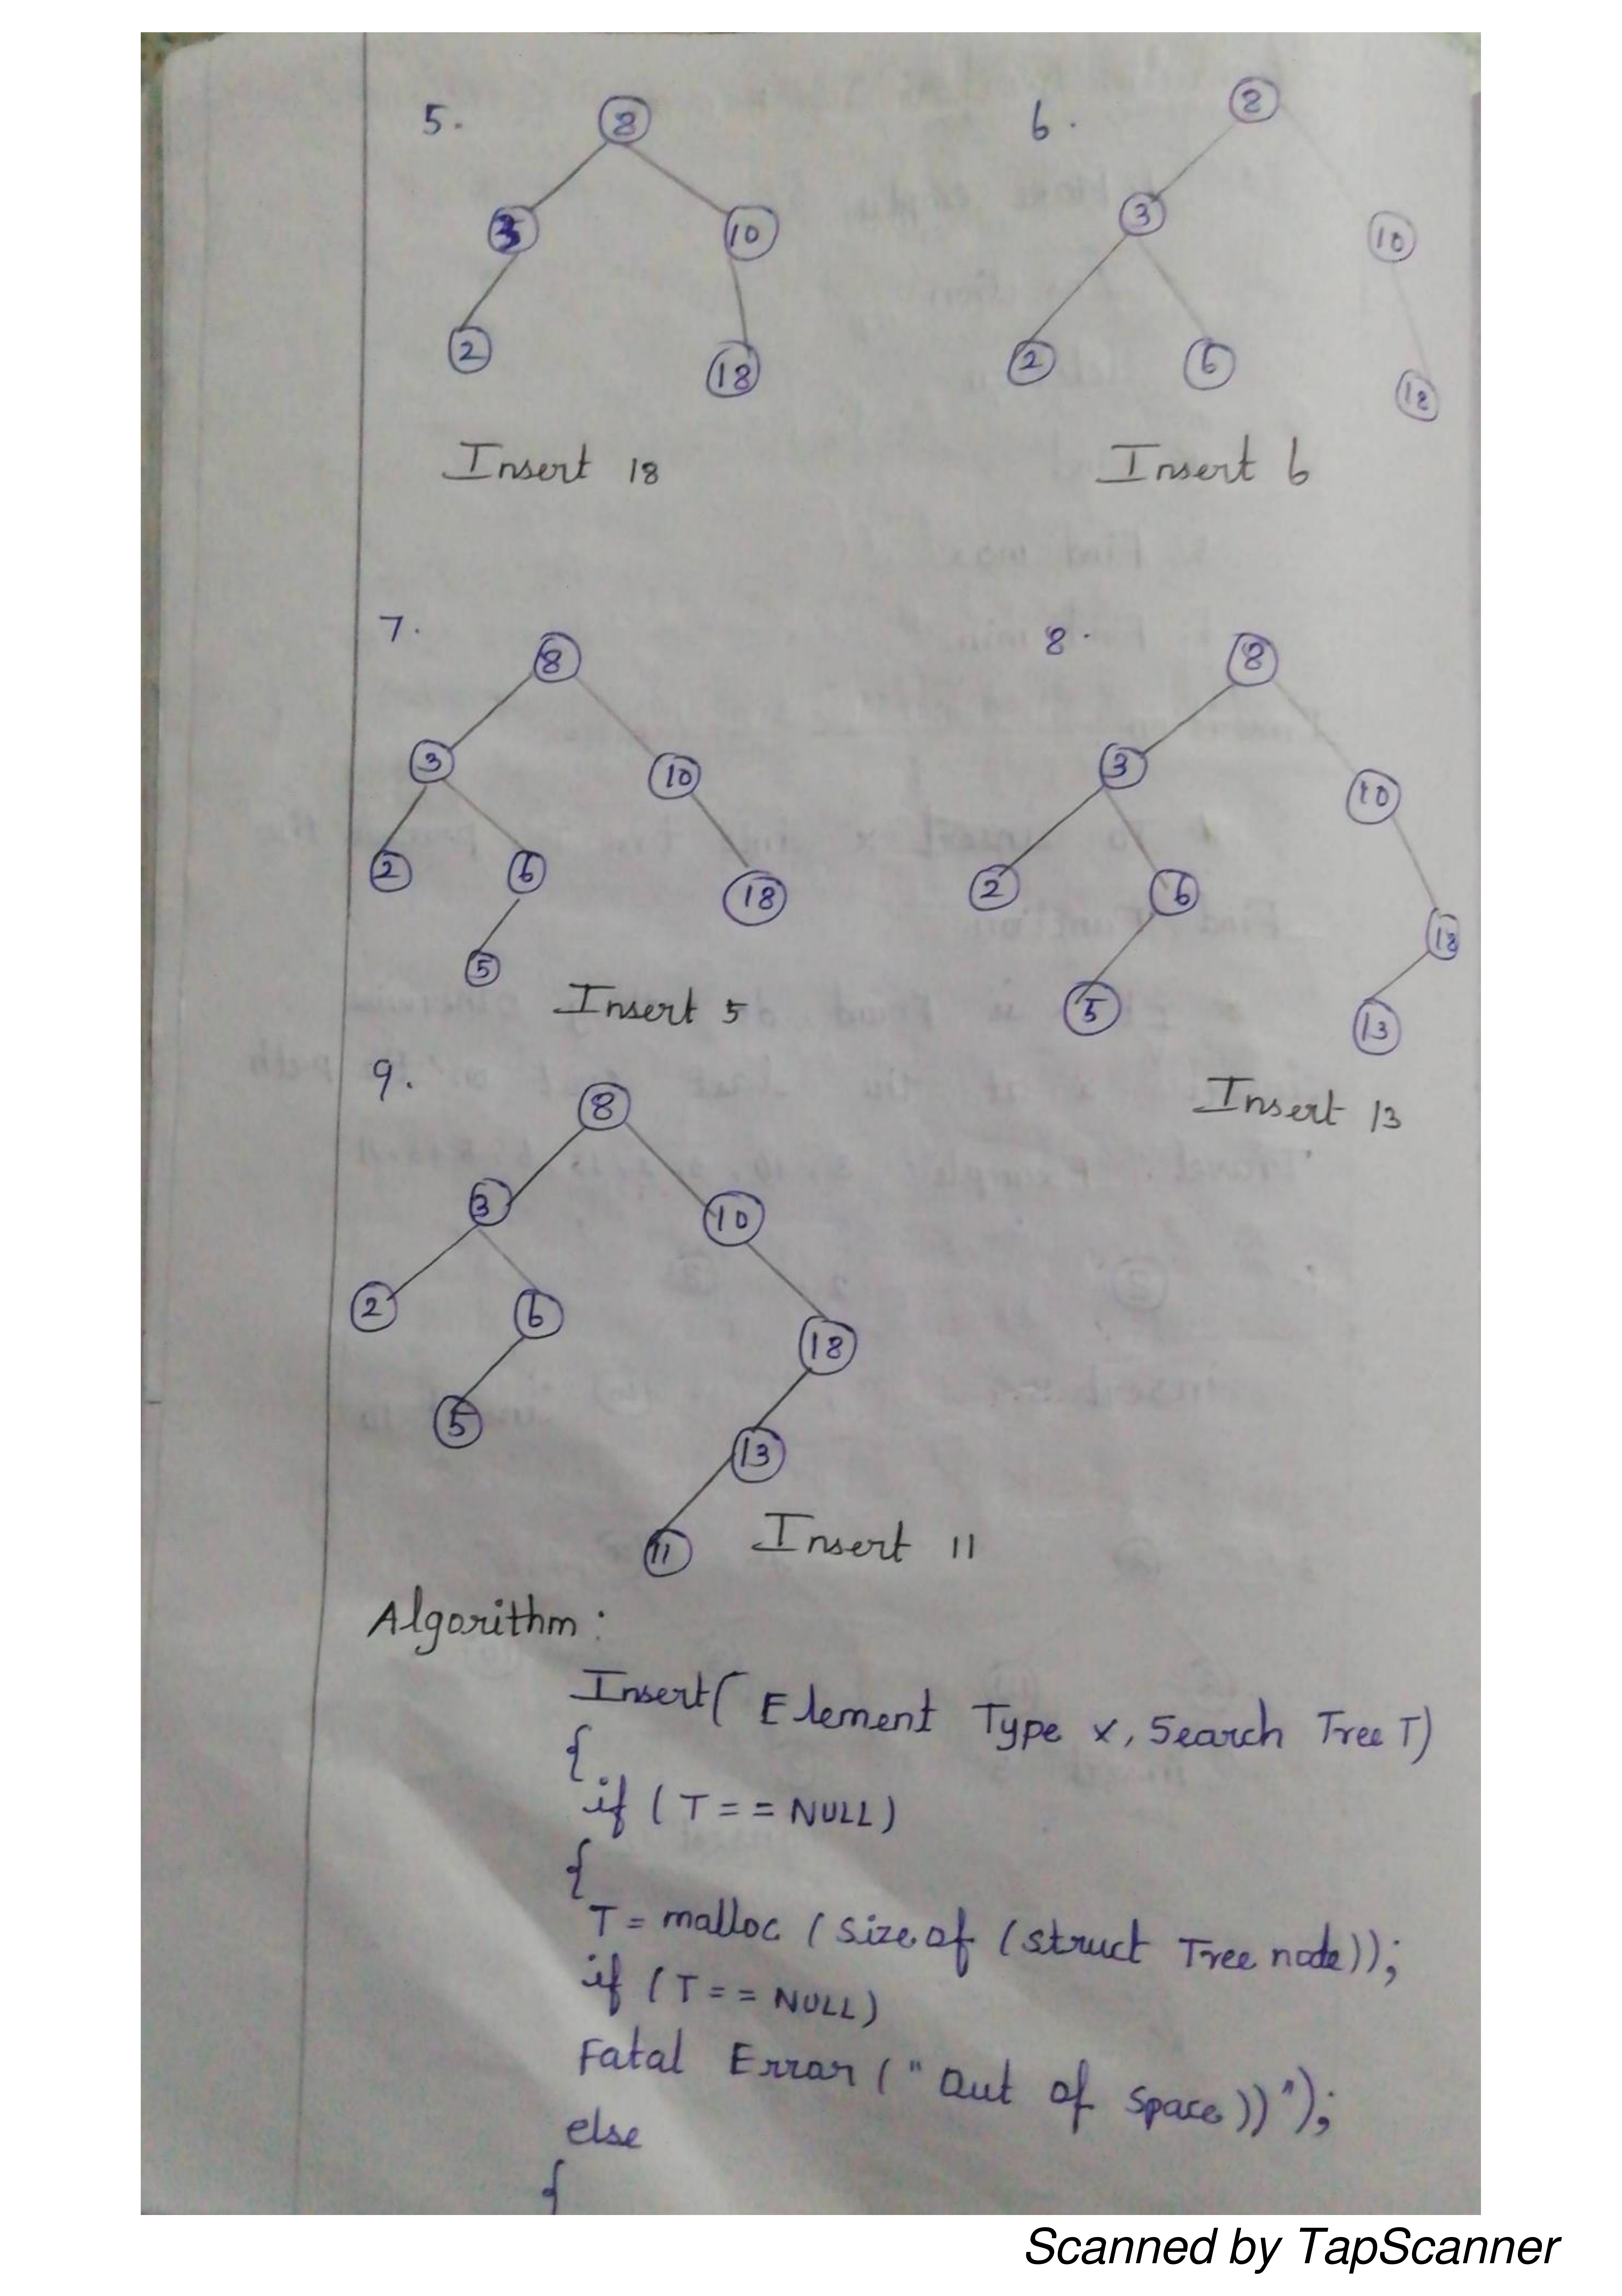 5.
8
3 10
2 18
Insert 18
6.
8
3 10
2 6 18
Insert 6
7.
8
3 10
2 6 18
5
Insert 5
8.
8
3 10
2 6 18
5 13
Insert 13
9.
8
3 10
2 6 18
5 13
11
Insert 11
Algorithm :
Insert( Element Type x, Search Tree T)
{
if ( T = = NULL)
{
T = malloc ( size of ( struct Tree node));
if ( T = = NULL)
Fatal Error ( " Out of space))");
else
{
Scanned by TapScanner